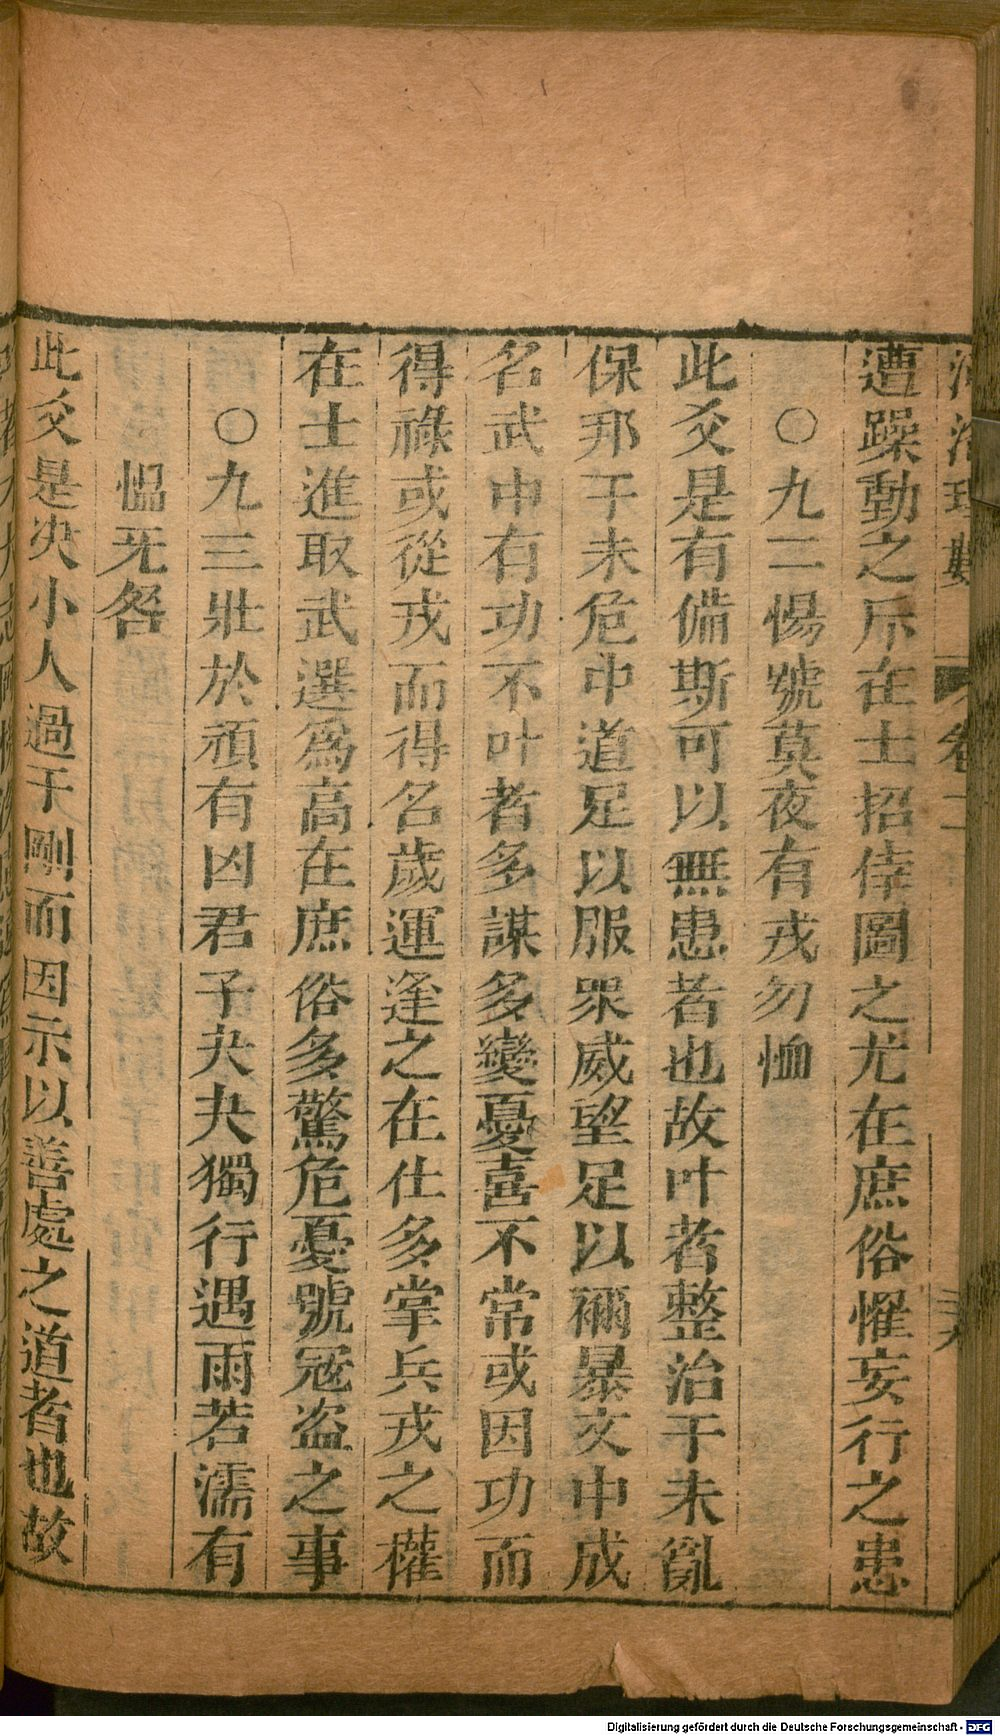 河洛理數 卷二
遭躁動之斥在士招倖圖之尤在庶俗懼妄行之患
○九二惕號莫夜有戎勿恤
此爻是有備斯可以無患者也故叶者整治于未亂
保邦于未危中道足以服眾威望足以禰暴文中成
名武中有功不叶者多謀多變憂喜不常或因功而
得祿或從戎而得名歲運逢之在仕多掌兵戎之權
在士進取武選爲高在庶俗多驚危憂號冦盗之事
○九三壯於頄有凶君子夬夬獨行遇雨若濡有
愠无咎
此爻是决小人過于剛而因示以善處之道者也故
Digitalisierung gefördert durch die Deutsche Forschungsgemeinschaft - DFG